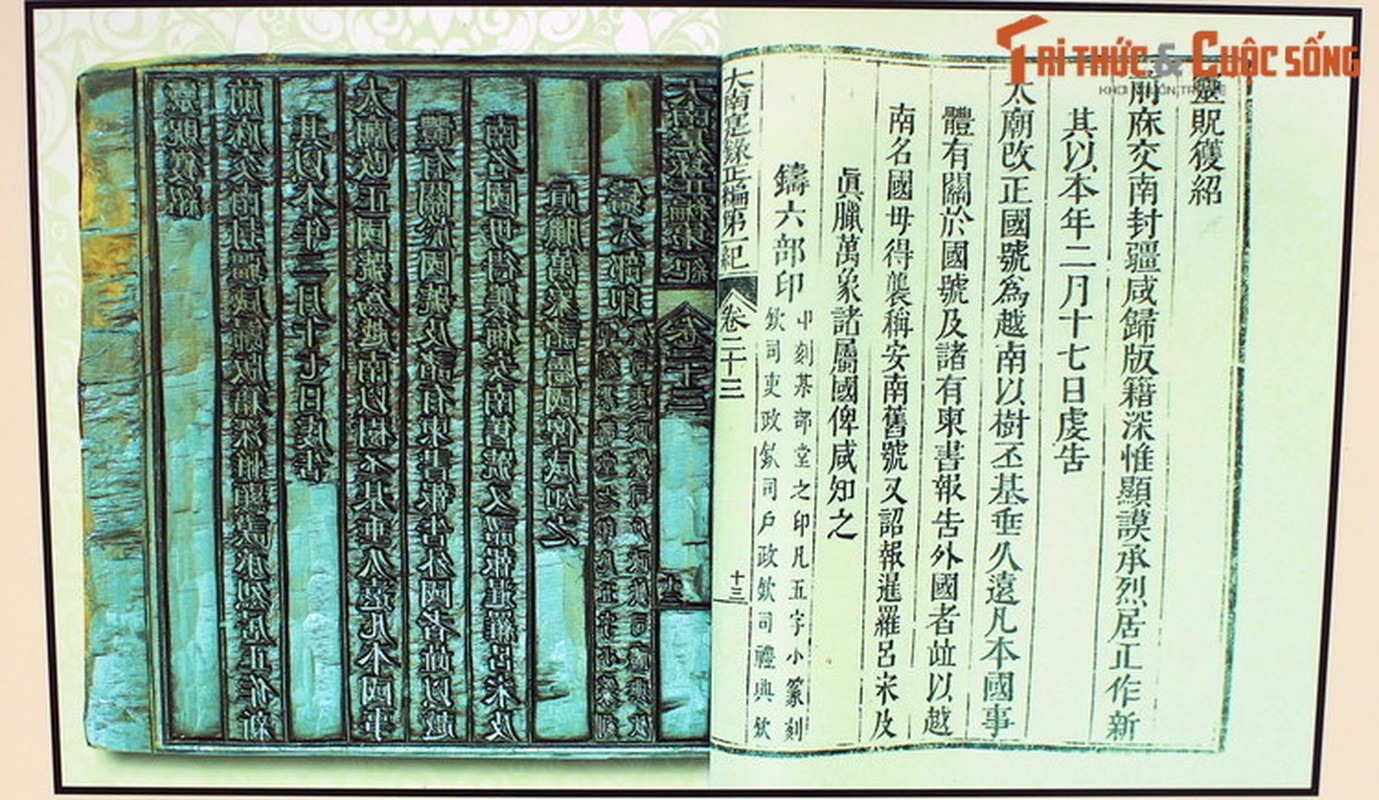 TRI THỨC & CUỘC SỐNG
靈貺獲紹
前庥交南封疆咸歸版籍深惟顯謨承烈居正作新
其以本年二月十七日虔告
太廟改正國號爲越南以樹丕基垂久遠凡本國事
體有關於國號及諸有柬書報告外國者竝以越
南名國毋得襲稱安南舊號又詔報暹羅呂宋及
眞臘萬象諸屬國俾咸知之
鑄六部印
印刻某部堂之印凡五字小篆刻
欽司吏政欽司戶政欽司禮典欽
大南寔錄正編第一紀 卷二十三 十三